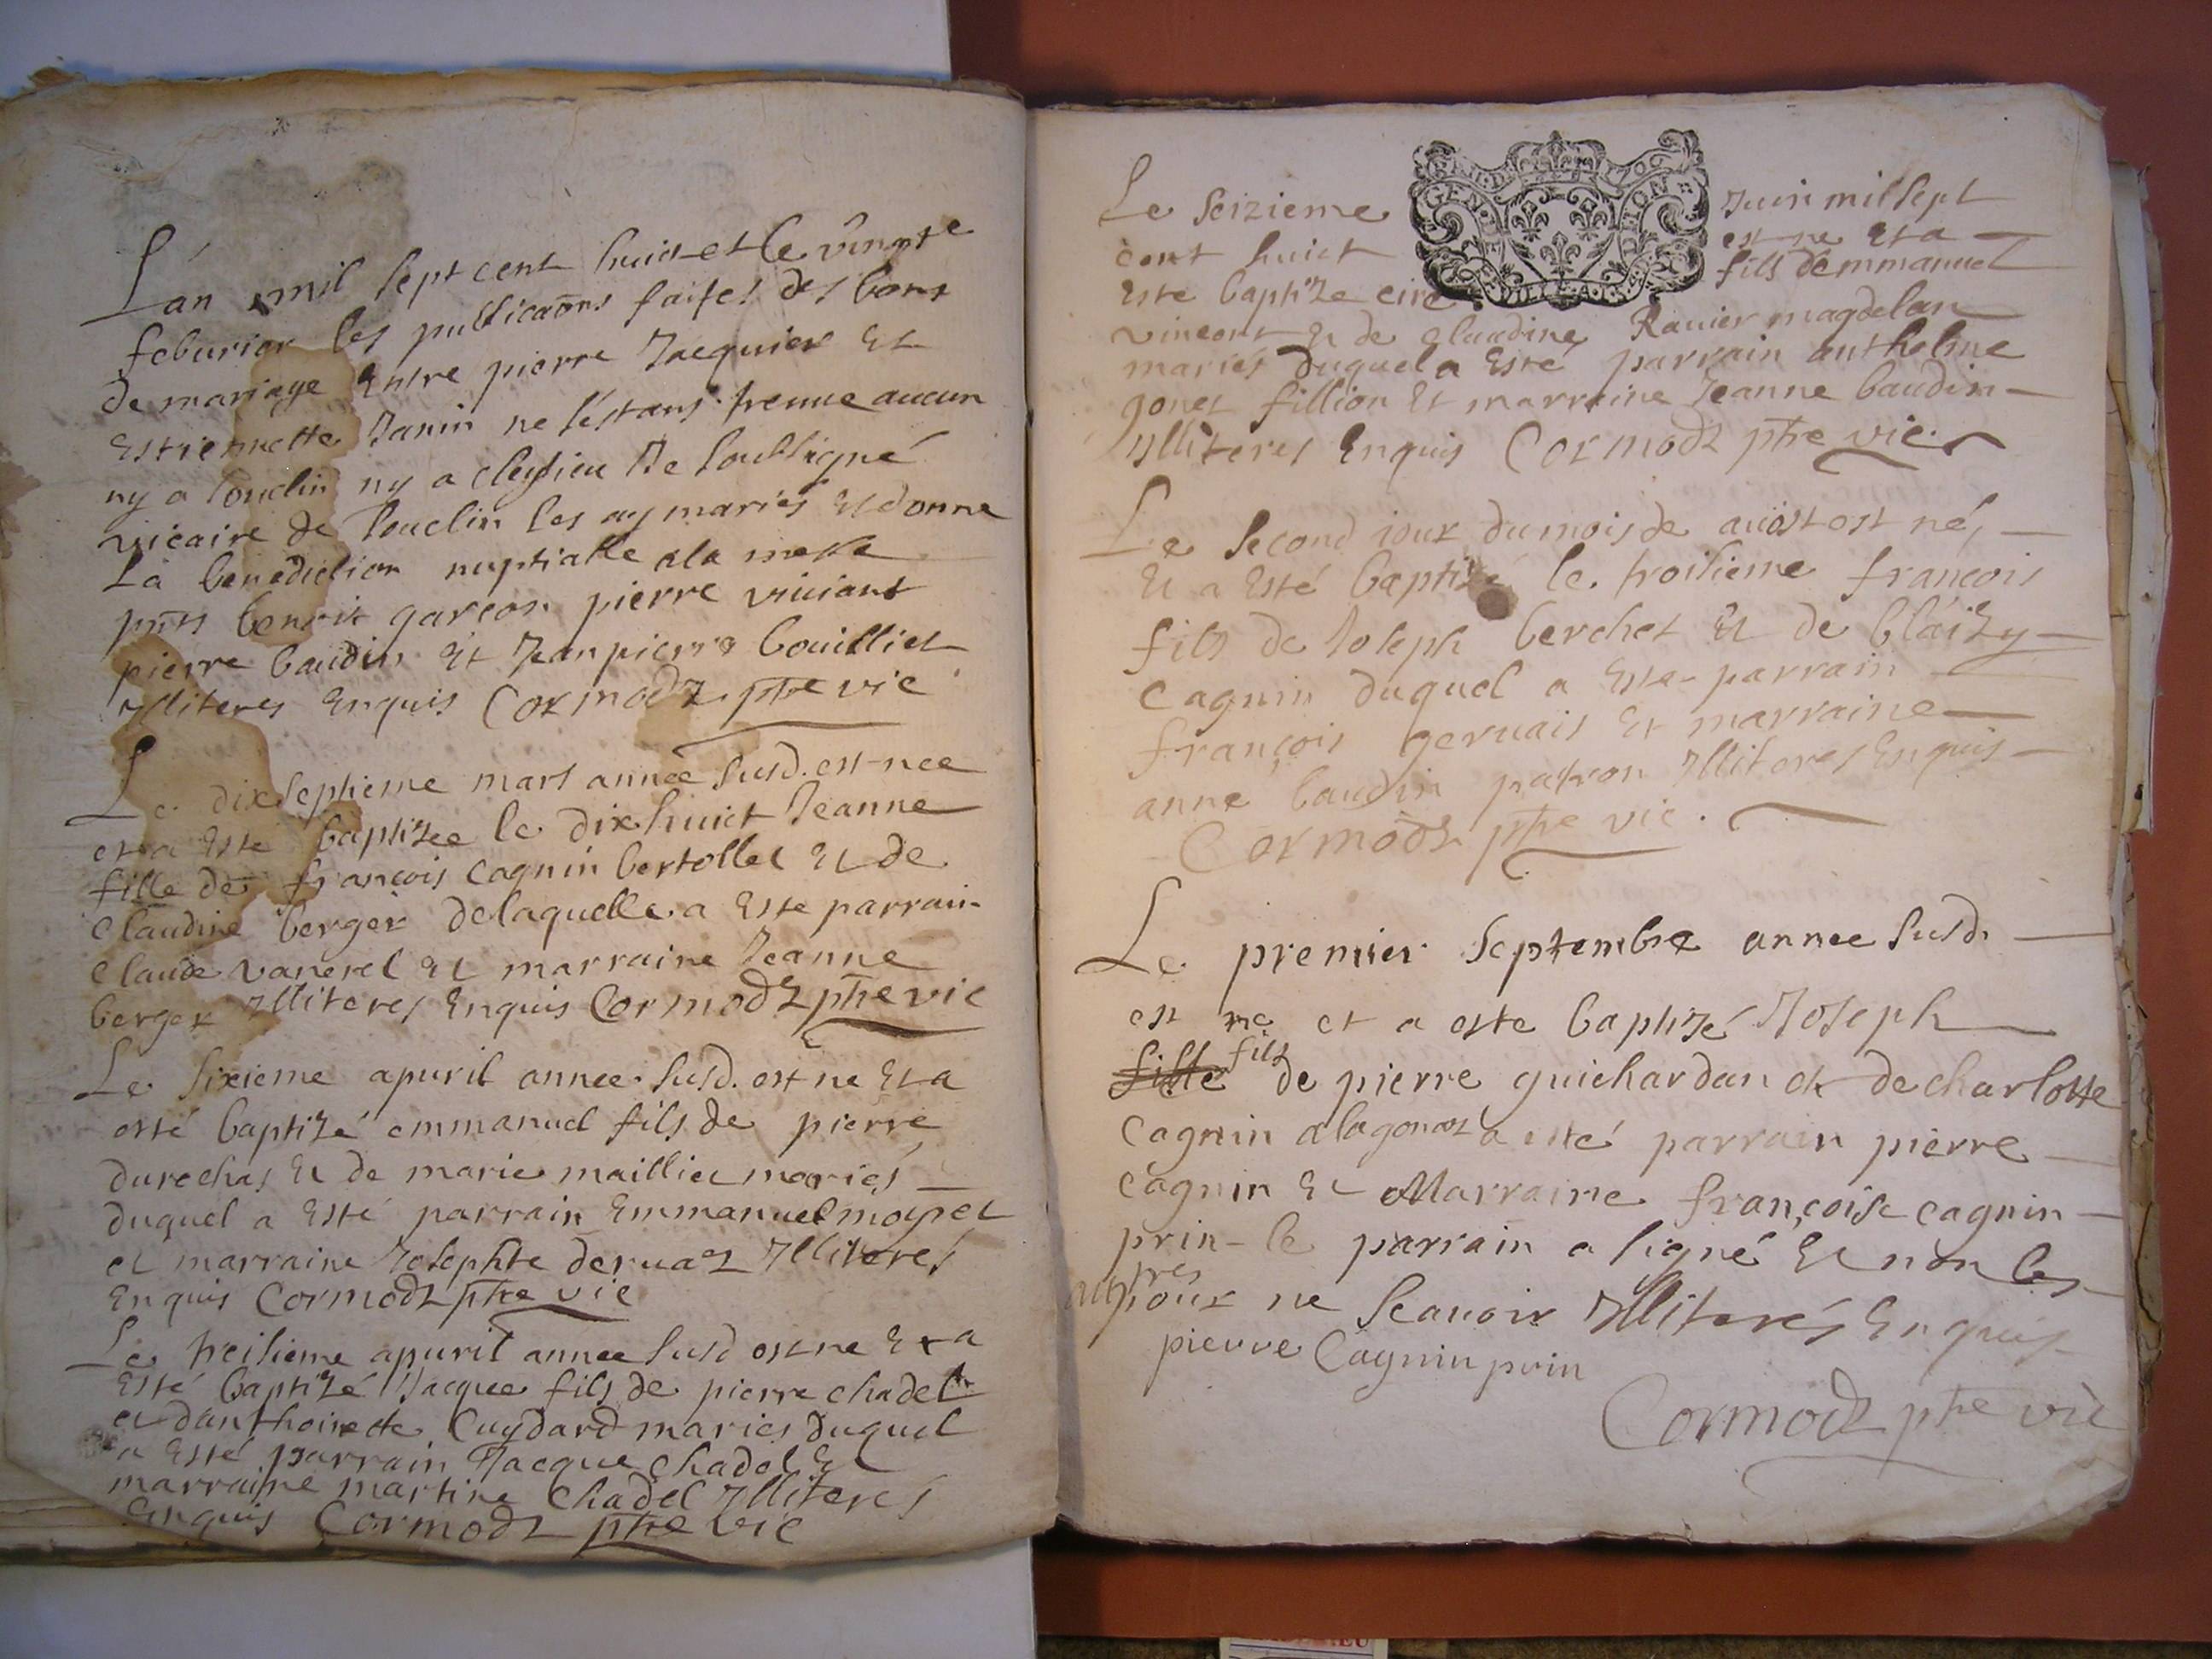 Lán mil sept cent huict et le vingte
feburier les publicaons faites des bans
de mariage Entre pierre Jacquier Et
Estiennette Janin ne sestant treuue aucun
ny a Souclin ny a cleysieu Je soubsigné
vicaire de Souclin les ay mariés Et donne
La benediction nuptialle a la messe
pnts benoit garcon pierre viuiant
pierre baudin Et Jean pierre bouilliet
Illiteres Enquis Cormodz ptre vic
Le dixseptieme mars année susd. est nee
et a Esté baptizee le dixhuict Jeanne
fille de françois Cagnin bertollet Et de
Claudine berger de laquelle a Esté parrain
Claude vanerel Et marraine Jeanne
berger Illiteres Enquis Cormodz ptre vic
Le sixieme apuril annee susd. est ne Et a
esté baptizé emmanuel fils de pierre
durochas Et de marie mailliet mariés
duquel a Esté parrain Emmanuel moynet
et marraine Josephte deruaz Illiterés
Enquis Cormodz ptre vic
Le treisieme apuril annee susd est ne Et a
Esté baptizé Jacque fils de pierre chadel
et danthoinette Cuydard mariés duquel
a Esté parrain Jacque chadel Et
marraine martine chadel Illiterés
Enquis Cormodz ptre vic
GEN. DE 1708
GENERALITION
Le seizieme Juin mil sept
cent huict est ne Et a
Este baptize fils demmanuel
vincent Et de Claudine Rauier magdelan
mariés duquel a Esté parrain anthelme
gonet fillion Et marraine Jeanne baudin
Illiteres Enquis Cormodz ptre vic
Le second iour du mois de auost est né,
Et a Esté baptizé le troisieme françois
fils de Joseph berchet Et de blaizy
Cagnin duquel a Esté parrain
françois geruais Et marraine
anne baudin patron Illiteres Enquis
Cormodz ptre vic.
Le premier septembre annee susd.
est ne et a esté baptizé Joseph
fille fils de pierre guichardan et de charlotte
Cagnin alagonaz a esté parrain pierre
Cagnin Et Marraine françoise cagnin
prin le parrain a signé Et non les
pres
pour ne scauoir Illiterés Enquis
pierre Cagnin prin
Cormodz ptre vic